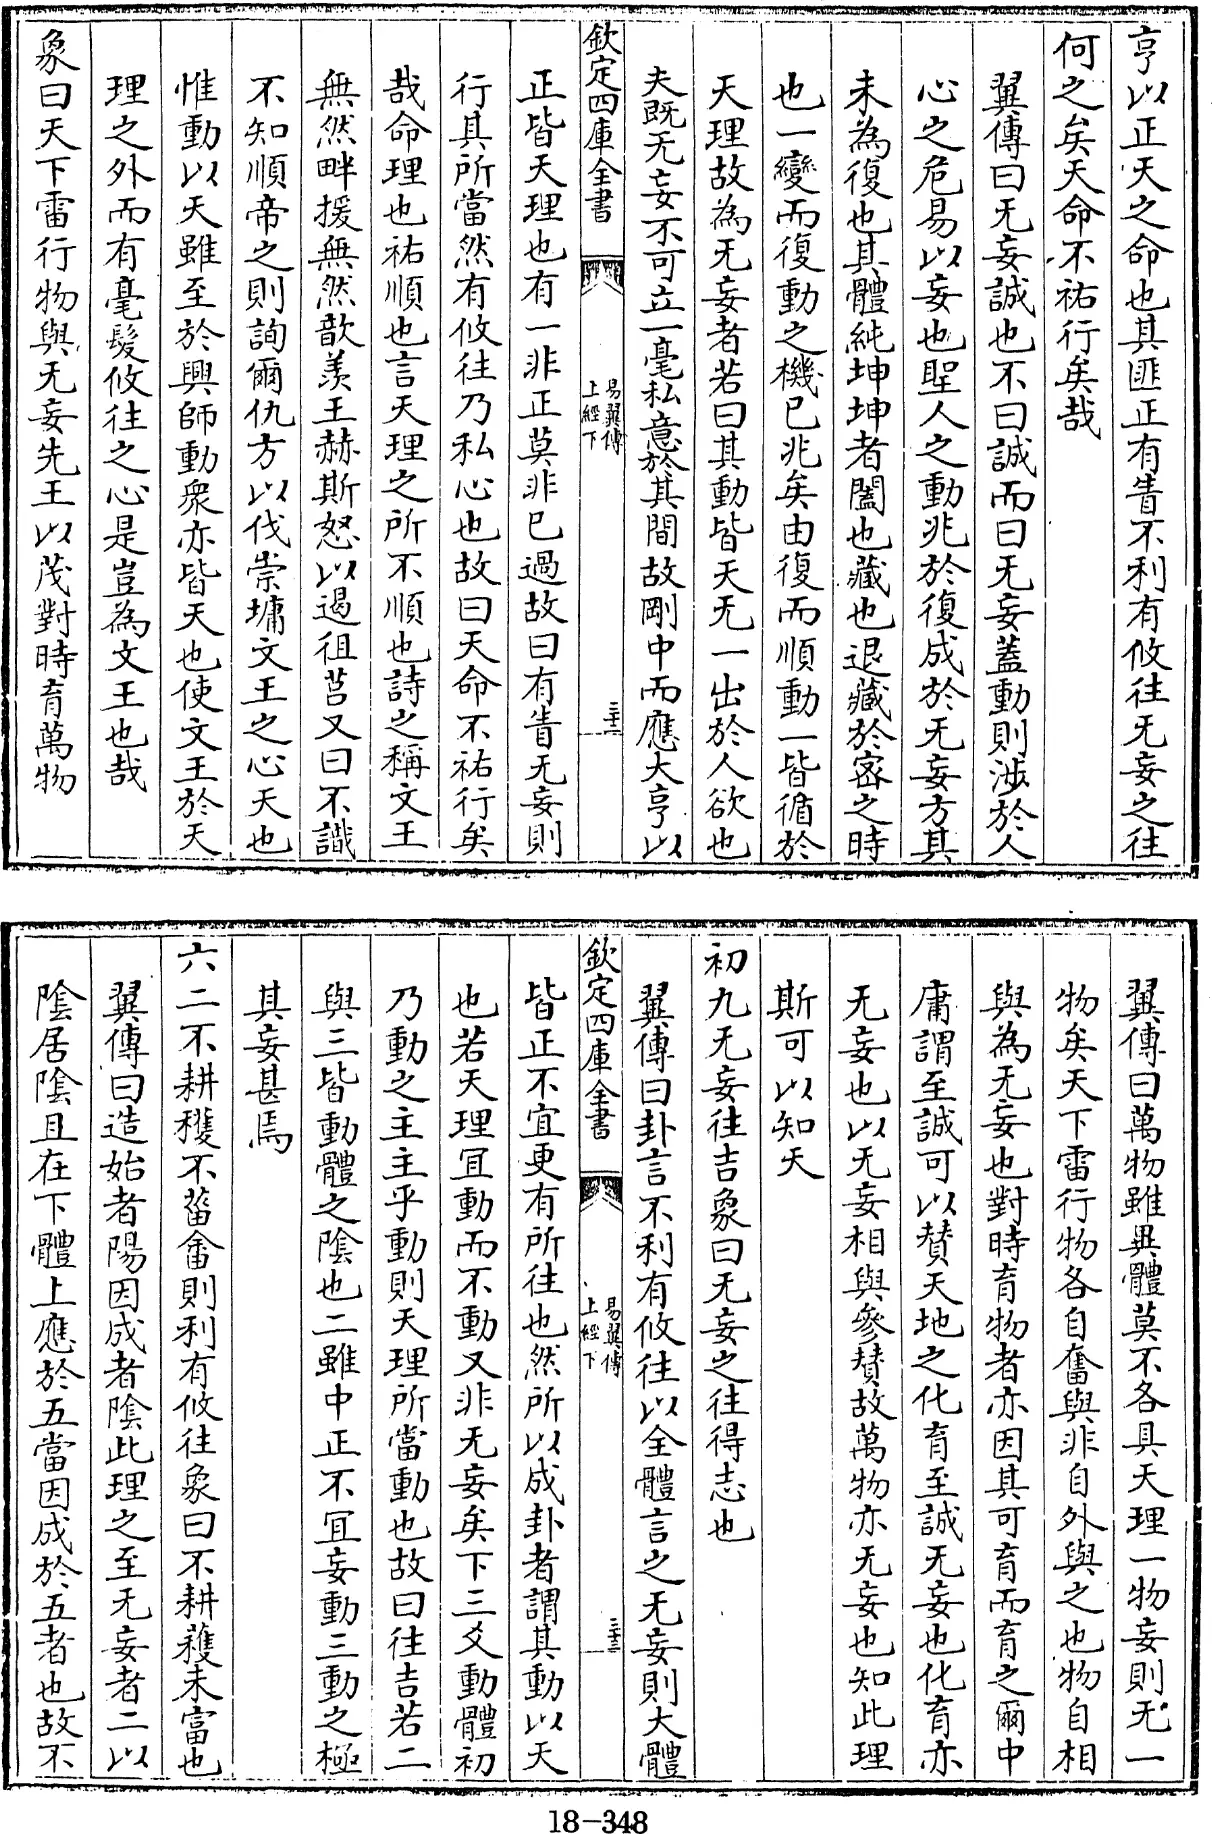 亨以正天之命也其匪正有眚不利有攸往无妄之往
何之矣天命不祐行矣哉
翼傳曰无妄誠也不曰誠而曰无妄蓋動則涉於人
心之危易以妄也聖人之動兆於復成於无妄方其
未為復也其體純坤坤者闔也藏也退藏於密之時
也一變而復動之機已兆矣由復而順動一皆循於
天理故為无妄者若曰其動皆天无一出於人欲也
夫既无妄不可立一毫私意於其間故剛中而應大亨以
欽定四庫全書
易翼傳
上經下
三十二
正皆天理也有一非正莫非已過故曰有眚无妄則
行其所當然有攸往乃私心也故曰天命不祐行矣
哉命理也祐順也言天理之所不順也詩之稱文王
無然畔援無然歆羨王赫斯怒以遏徂莒又曰不識
不知順帝之則詢爾仇方以伐崇墉文王之心天也
惟動以天雖至於興師動衆亦皆天也使文王於天
理之外而有毫髮攸往之心是豈為文王也哉
象曰天下雷行物與无妄先王以茂對時育萬物
翼傳曰萬物雖異體莫不各具天理一物妄則无一
物矣天下雷行物各自奮與非自外與之也物自相
與為无妄也對時育物者亦因其可育而育之爾中
庸謂至誠可以贊天地之化育至誠无妄也化育亦
无妄也以无妄相與參贊故萬物亦无妄也知此理
斯可以知天
初九无妄往吉象曰无妄之往得志也
翼傳曰卦言不利有攸往以全體言之无妄則大體
欽定四庫全書
易翼傳
上經下
三十三
皆正不宜更有所往也然所以成卦者謂其動以天
也若天理宜動而不動又非无妄矣下三爻動體初
乃動之主主乎動則天理所當動也故曰往吉若二
與三皆動體之陰也二雖中正不宜妄動三動之極
其妄甚焉
六二不耕穫不菑畬則利有攸往象曰不耕穫未富也
翼傳曰造始者陽因成者陰此理之至无妄者二以
陰居陰且在下體上應於五當因成於五者也故不
18-348